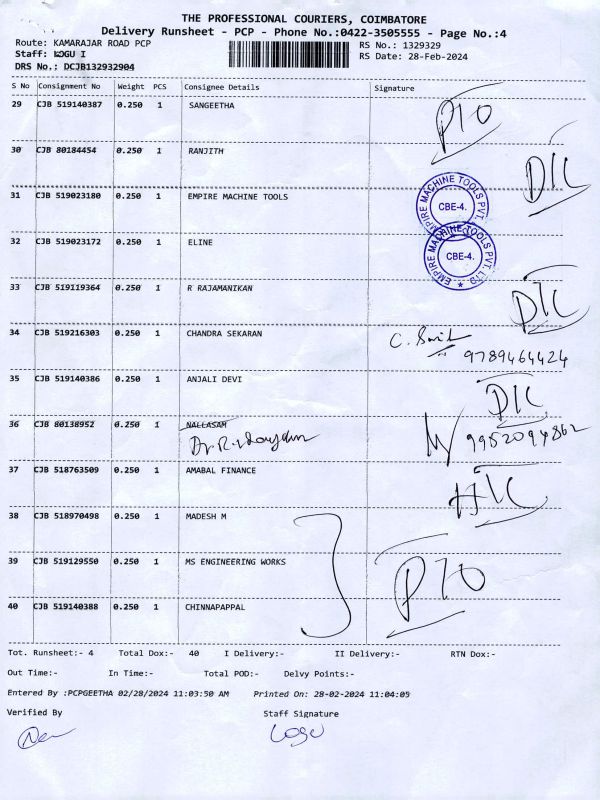 THE PROFESSIONAL COURIERS, COIMBATORE
Delivery Runsheet - PCP - Phone No.:0422-3505555 - Page No.:4
Route: KAMARAJAR ROAD PCP
RS No.: 1329329
Staff: LOGU I
RS Date: 28-Feb-2024
DRS No.: DCJB132932904
S No Consignment No Weight PCS Consignee Details Signature
29 CJB 519140387 0.250 1 SANGEETHA
P10
30 CJB 80184454 0.250 1 RANJITH
D/L
31 CJB 519023180 0.250 1 EMPIRE MACHINE TOOLS
EMPIRE MACHINE TOOLS PVT.
CBE-4.
32 CJB 519023172 0.250 1 ELINE
EMPIRE MACHINE TOOLS PVT. LTD ★
CBE-4.
33 CJB 519119364 0.250 1 R RAJAMANIKAN
D/L
34 CJB 519216303 0.250 1 CHANDRA SEKARAN
9789464424
35 CJB 519140386 0.250 1 ANJALI DEVI
D/L
36 CJB 80138952 0.250 1 NALLASAM
9952094862
37 CJB 518763509 0.250 1 AMABAL FINANCE
H/L
38 CJB 518970498 0.250 1 MADESH M
39 CJB 519129550 0.250 1 MS ENGINEERING WORKS
P10
40 CJB 519140388 0.250 1 CHINNAPAPPAL
Tot. Runsheet:- 4 Total Dox:- 40 I Delivery:- II Delivery:- RTN Dox:-
Out Time:- In Time:- Total POD:- Delvy Points:-
Entered By :PCPGEETHA 02/28/2024 11:03:50 AM Printed On: 28-02-2024 11:04:09
Verified By Staff Signature
Logu